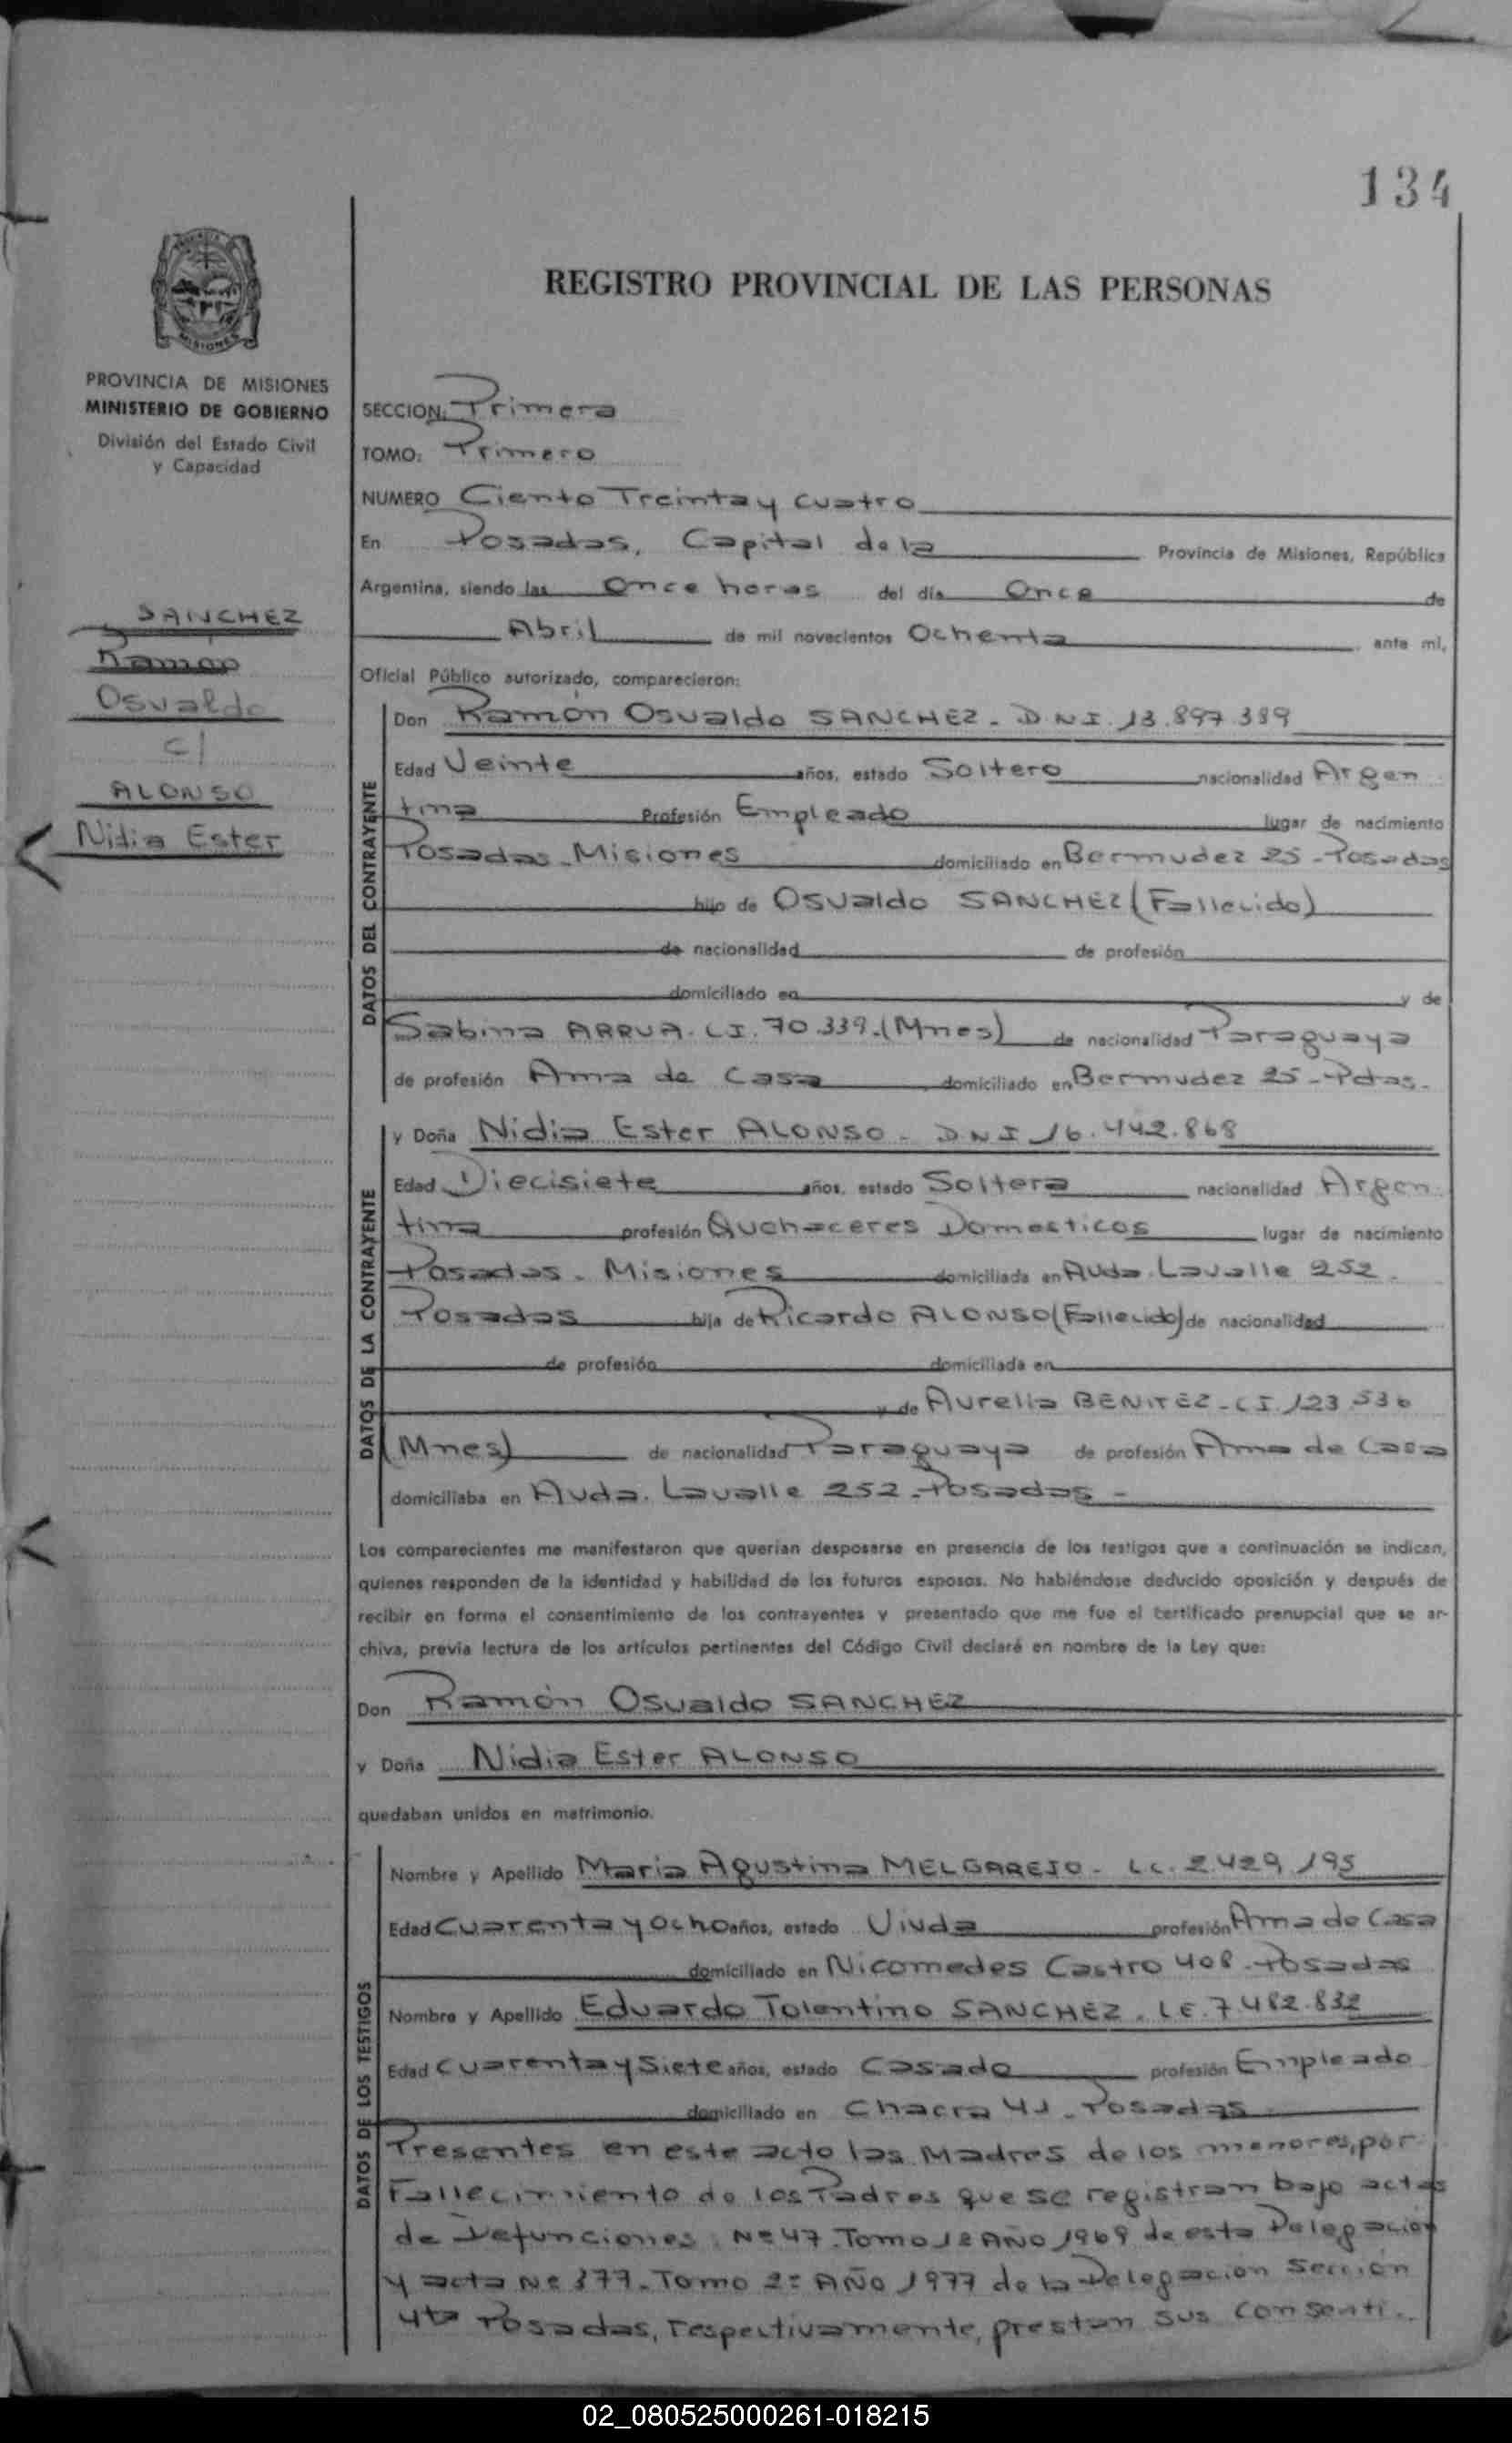 134
REGISTRO PROVINCIAL DE LAS PERSONAS
MISIONES
PROVINCIA DE MISIONES
MINISTERIO DE GOBIERNO
División del Estado Civil
y Capacidad
SANCHEZ
Ramon
Osvaldo
c/
ALONSO
Nidia Ester
SECCION: Primera
TOMO: Primero
NUMERO Ciento Treinta y cuatro
En Posadas, Capital de la Provincia de Misiones, República
Argentina, siendo las Once horas del día Once de
Abril de mil novecientos Ochenta ante mi,
Oficial Público autorizado, comparecieron:
DATOS DEL CONTRAYENTE
Don Ramón Osvaldo SANCHEZ - D.N.I. 13.897.389
Edad Veinte años, estado Soltero nacionalidad Argen
tina Profesión Empleado lugar de nacimiento
Posadas - Misiones domiciliado en Bermudez 25 - Posadas
hijo de Osvaldo SANCHEZ (Fallecido)
de nacionalidad de profesión
domiciliado en y de
Sabina ARRUA. C.I. 70.339. (Mnes) de nacionalidad Paraguaya
de profesión Ama de Casa domiciliado en Bermudez 25 - Pdas.
DATOS DE LA CONTRAYENTE
y Doña Nidia Ester ALONSO - D.N.I 16.442.868
Edad Diecisiete años, estado Soltera nacionalidad Argen
tina profesión Quehaceres Domesticos lugar de nacimiento
Posadas - Misiones domiciliada en Avda. Lavalle 252.
Posadas hija de Ricardo ALONSO (Fallecido) de nacionalidad
de profesión domiciliada en
y de Aurelia BENITEZ - C.I. 123.536
(Mnes) de nacionalidad Paraguaya de profesión Ama de Casa
domiciliaba en Avda. Lavalle 252 - Posadas -
Los comparecientes me manifestaron que querían desposarse en presencia de los testigos que a continuación se indican,
quienes responden de la identidad y habilidad de los futuros esposos. No habiéndose deducido oposición y después de
recibir en forma el consentimiento de los contrayentes y presentado que me fue el certificado prenupcial que se ar-
chiva, previa lectura de los artículos pertinentes del Código Civil declaré en nombre de la Ley que:
Don Ramón Osvaldo SANCHEZ
y Doña Nidia Ester ALONSO
quedaban unidos en matrimonio.
DATOS DE LOS TESTIGOS
Nombre y Apellido Maria Agustina MELGAREJO - L.C. 2.429.195
Edad Cuarenta y Ocho años, estado Viuda profesión Ama de Casa
domiciliado en Nicomedes Castro 408 - Posadas
Nombre y Apellido Eduardo Tolentino SANCHEZ. L.E. 7.482.832
Edad Cuarenta y Siete años, estado Casado profesión Empleado
domiciliado en Chacra 41 - Posadas
Presentes en este acto las Madres de los menores, por
Fallecimiento de los Padres que se registran bajo actas
de Defunciones: Nº 47. Tomo 1º AÑO 1969 de esta Delegación
y acta Nº 377. Tomo 2º AÑO 1977 de la Delegación Sección
4ta Posadas, respectivamente, prestan sus consenti..
02_080525000261-018215